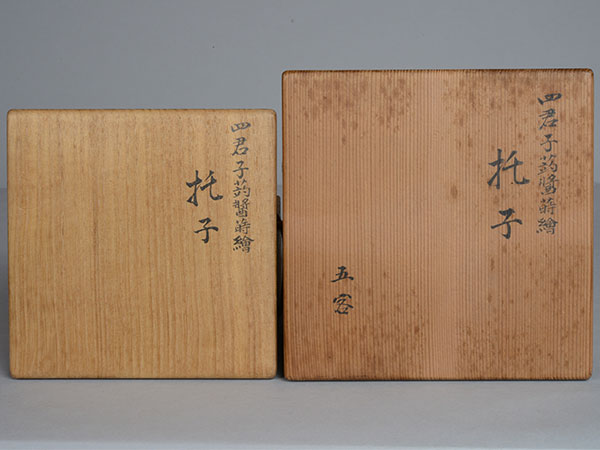 四君子蒟醬蒔繪
托子
四君子蒟醬蒔繪
托子
五客